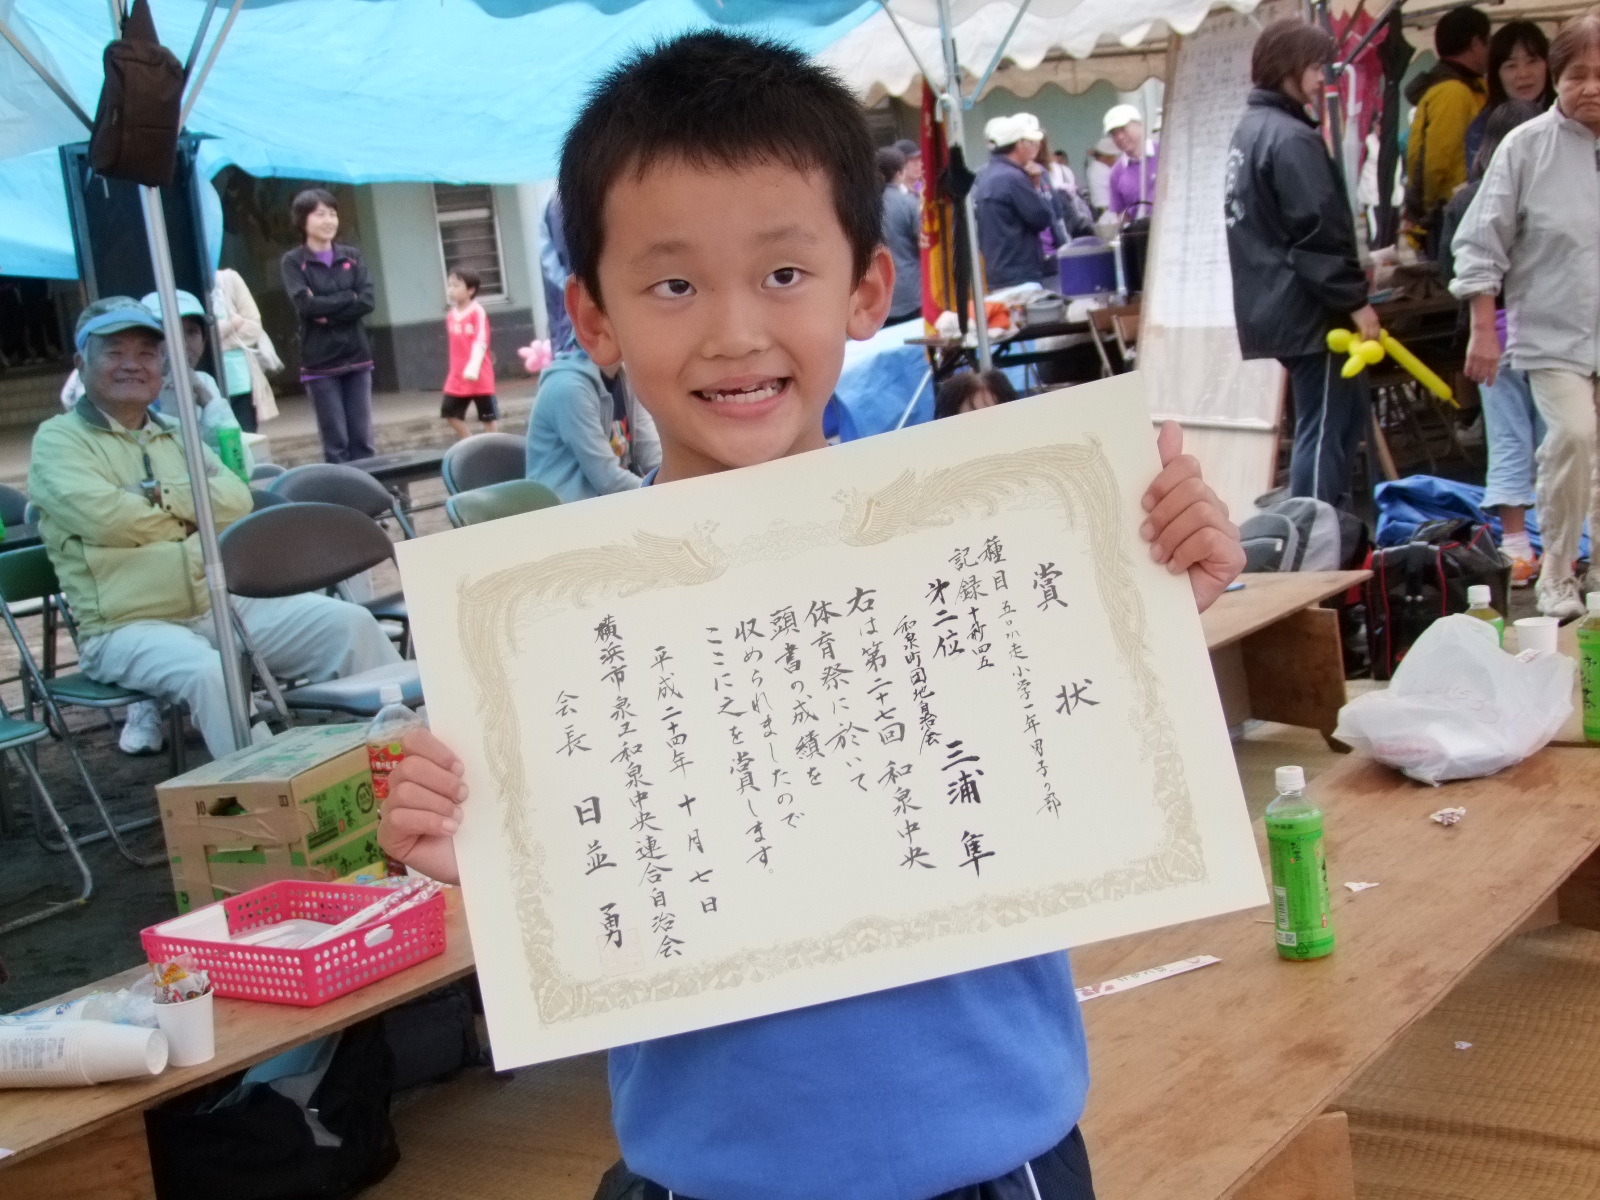 賞状
種目 五〇m走小学一年男子の部
記録 十秒四五
第二位
和泉町団地自治会 三浦隼
右は第二十七回和泉中央
体育祭に於いて
頭書の成績を
収められましたので
ここに之を賞します。
平成二十四年十月七日
横浜市泉区和泉中央連合自治会
会長 日並 勇